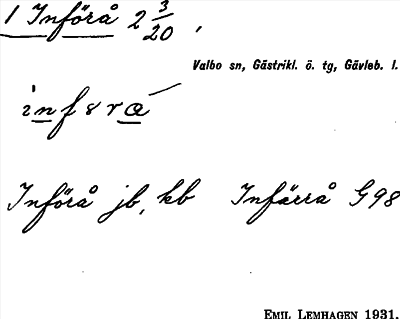 1 Införå 2 3/20,
Valbo sn, Gästrikl. ö. tg, Gävleb. l.
Införå jb, kb Infärrå G98
EMIL LEMHAGEN 1931.